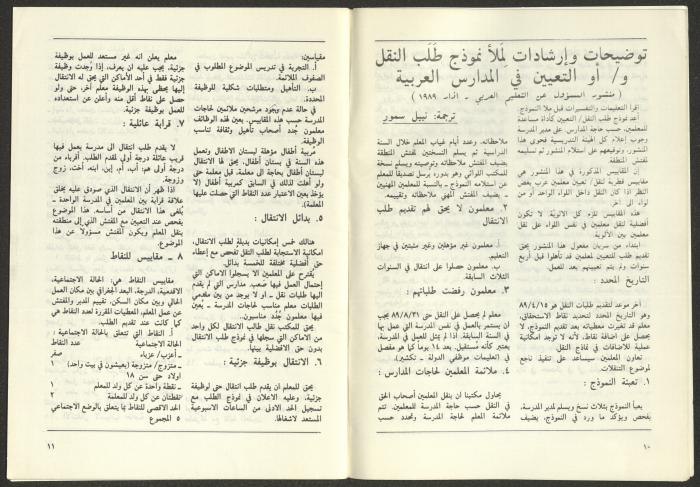 توضيحات وإرشادات لملأ نموذج طَلَب النقل
و/ أو التعيين في المدارس العربية
( منشور المسؤول عن التعليم العربي - آذار ١٩٨٩ )
ترجمة: نبيل سمور
اقرأ التعليمات والتفسيرات قبل ملأ النموذج.
أعد نموذج طلب النقل/ التعيين كأداة مساعدة
للمعلمين، حسب حاجة المدارس على مدير المدرسة
وجوب إعلام كل الهيئة التدريسية فحوى هذا
المنشور، وتوقيعهم على استلام المنشور ثم تسليمه
لمفتش المنطقة.
إن المقاييس المذكورة في هذا المنشور هي
مقاييس قطرية لنقل/ تعيين معلمين عرب بغض
النظر اذا كان النقل داخل اللواء الواحد أو من
لواء الى آخر.
هذه المقاييس تلزم كل الالوية. لا تكون
أفضلية لنقل معلمين في نفس اللواء على نقل
معلمين بين الالوية.
ابتداء من سريان مفعول هذا المنشور يحق
تقديم طلب للمعلمين لمعلمين قد تأهلوا قبل أربع
سنوات ولم يتم تعيينهم بعد للعمل.
التاريخ المحدد :
آخر موعد لتقديم طلبات النقل هو ٨٩/٤/١٥
وهو التاريخ المحدد لتحديد نقاط الاستحقاق،
معلم قد تغيرت معطياته بعد تقديم النموذج، لا
يحصل على اضافة نقاط، لأنه لا توجد امكانية
عملية للاضافات في نماذج النقل
تعاون المعلمين سيساعد على تنفيذ ناجع
لموضوع التنقلات.
١. تعبئة النموذج :
يعبأ النموذج بثلاث نسخ ويسلم لمدير المدرسة،
يفحص ويؤكد ما ورد في النموذج، يضيف
ملاحظاته. وعدد أيام غياب المعلم خلال السنة
الدراسية ثم يسلم النسختين لمفتش المنطقة
يضيف المفتش ملاحظاته وتوصيته ويسلم نسخة
للمكتب اللوائي وهو بدوره يرسل تصديقا للمعلم
عن استلامه نموذج - بالنسبة للمعلمين المهنيين
- يضيف المفتش المهني ملاحظاته وتقييمه.
٢. معلمون لا يحق لهم تقديم طلب
الانتقال
أ. معلمون غير مؤهلين وغير مثبتين في جهاز
التعليم.
ب. معلمون حصلوا على انتقال في السنوات
الثلاث السابقة.
٣. معلمون رفضت طلباتهم :
معلم لم يحصل على النقل حتى ٨٩/٨/٣١ يجب
ان يستمر بالعمل في نفس المدرسة التي عمل بها
في السنة السابقة. اذا لم يمثل للعمل في المدرسة،
يعتبر كأنه مستقيل. بعد ١٤ يوما كما هو مفصل
في (تعليمات موظفي الدولة - تكشير).
٤. ملائمة المعلمين لحاجات المدارس :
يحاول مكتبنا ان ينقل المعلمين أصحاب الحق
في النقل حسب حاجة المدرسة للمعلمين. تتم
ملائمة المعلم لحاجة المدرسة وتحدد حسب
١٠
مقياسين:
أ. التجربة في تدريس الموضوع المطلوب في
الصفوف الملائمة.
ب. التأهيل ومتطلبات شكلية للوظيفة
المحددة.
في حالة عدم وجود مرشحين ملائمين لحاجات
المدرسة حسب هذه المقاييس. يعين لهذه الوظائف
معلمون جدد أصحاب تأهيل وثقافة تناسب
الوظيفة.
مُربية أطفال مؤهلة لبستان الاطفال وتعمل
هذه السنة في بستان أطفال، يحق لها الانتقال
لبستان أطفال بحاجة الى معلمة. قبل معلمة حتى
ولو أهلت لذلك في السابق كمربية أطفال (لا
يؤخذ بعين الاعتبار عدد النقاط التي حصلت عليها
المعلمة).
٥. بدائل الانتقال :
هنالك خمس إمكانيات بديلة لطلب الانتقال.
امكانية الاستجابة لطلب النقل تفحص مع إعطاء
حق أفضلية مختلفة للخمسة بدائل.
يُقترح على المعلمين الا يسجلوا الاماكن التي
إحتمال العمل فيها صعبد. مدارس التي لم يقدم
اليها طلبات نقل - او لا يوجد من بين مقدمي
الطلبات معلم مناسب لحاجات المدرسة - يعين
فيها معلمون جُدد من مناسبون.
يحق للمكتب نقل طالب الانتقال لكل واحد
من الاماكن التي سجلها في نموذج طلب الانتقال
بدون حق الافضلية بينها.
٦. الانتقال بوظيفة جزئية :
يحق للمعلم ان يقدم طلب انتقال حتى لوظيفة
جزئية، وعليه الاعلان في نموذج الطلب مع
تسجيل الحد الادنى من الساعات الاسبوعية
المستعد لاشغالها.
معلم يعلن انه غير مستعد للعمل بوظيفة
جزئية، يجب عليه ان يعرف، إذا وُجدت وظيفة
جزئية فقط في أحد الأماكن التي يحق له الانتقال
إليها يحظى بهذه الوظيفة معلم آخر، حتى ولو
حصل على نقاط أقل منه وأعلن عن استعداده
للعمل بوظيفة جزئية.
٧. قرابة عائلية :
لا يقدم طلب انتقال الى مدرسة يعمل فيها
قريب عائلة درجة أولى لمقدم الطلب. أقرباء من
درجة أولى هم: أب، أم، إبن، ابنه، أخت، زوج
وزوجة.
اذا ظهر أن الانتقال الذي صودق عليه يخلق
علاقة قرابة بين المعلمين في المدرسة الواحدة -
يُلغى هذا الانتقال من أساسه. هذا الموضوع
يفحص عند التعيين مع المفتش الذي إلى منطقته
ينقل المعلم ويكون المفتش مسؤولا عن هذا
الموضوع.
٨ - مقاييس للنقاط
مقاييس النقاط هي: الحالة الاجتماعية،
الاقدمية، الدرجة، البعد الجغرافي بين مكان العمل
الحالي وبين مكان السكن، تقييم المدير والمفتش
عن عمل المعلم، المعطيات المقررة لعدد النقاط هي
كما كانت عند تقديم الطلب.
أ. النقاط التي تتعلق بالحالة الاجتماعية :
الحالة الاجتماعية عدد النقاط
- أعزب / عزباء صفر
- متزوج/ متزوجة (يعيشون في بيت واحد) ١
اولاد حتى سن ١٨
- نقطة واحدة عن كل ولد للمعلم ١
- نقطتان عن كل ولد للمعلمة ٢
الحد الاقصى للنقاط بما يتعلق بالوضع الاجتماعي
المجموع ٥
١١